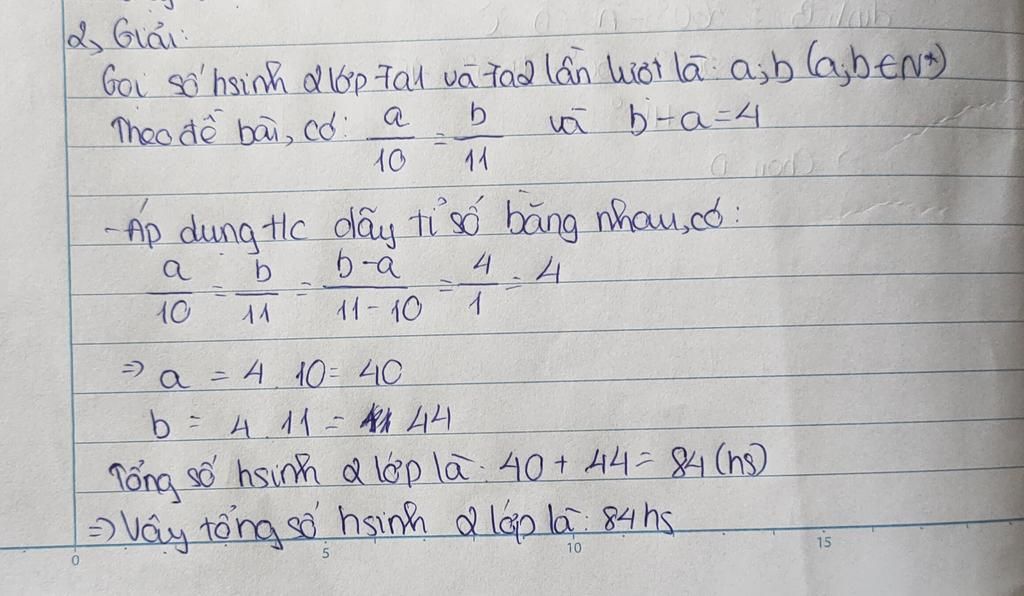 2, Giải:
Gọi số hsinh 2 lớp 7a1 và 7a2 lần lượt là: a;b (a;b ∈ N*)
Theo đề bài, có: a/10 = b/11 và b-a=4
- Áp dụng t/c dãy tỉ số bằng nhau, có:
a/10 = b/11 = b-a/11-10 = 4/1 = 4
=> a = 4 . 10 = 40
b = 4 . 11 = 44
Tổng số hsinh 2 lớp là: 40 + 44 = 84 (hs)
=> Vậy tổng số hsinh 2 lớp là: 84hs
0 5 10 15